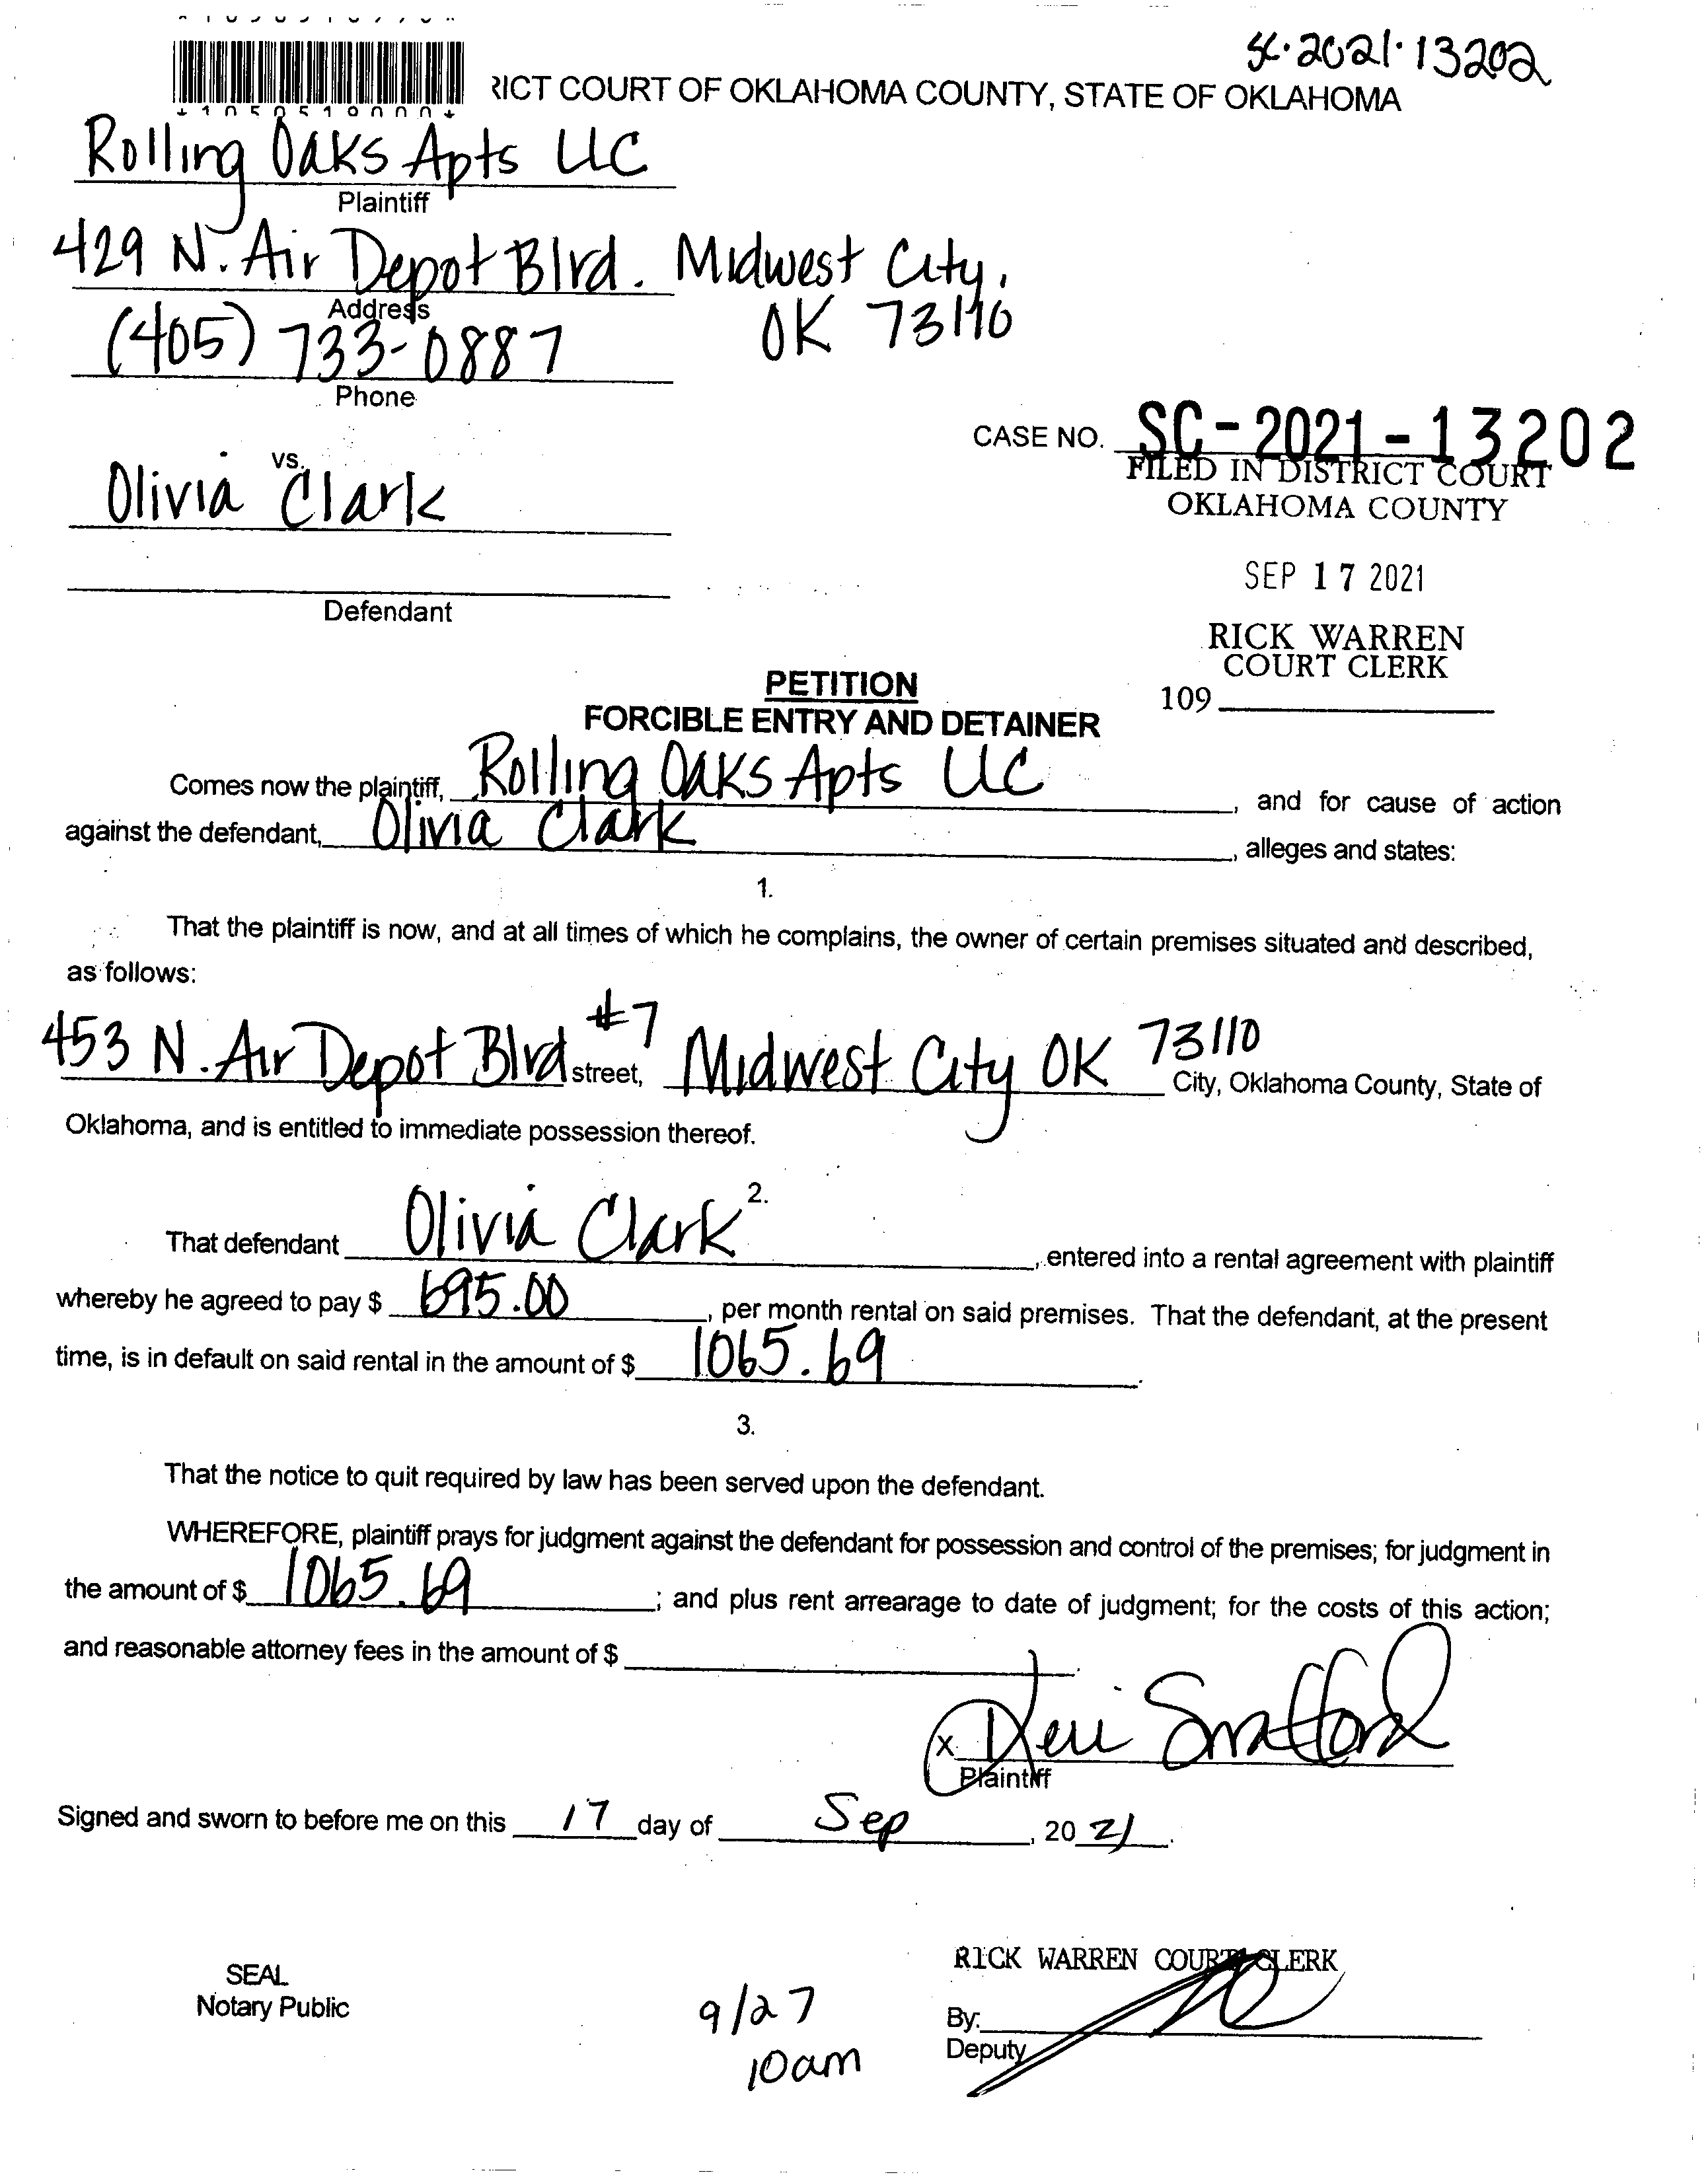 SC-2021-13202
RICT COURT OF OKLAHOMA COUNTY, STATE OF OKLAHOMA
Rolling Oaks Apts LLC
Plaintiff
429 N. Air Depot Blvd. Midwest City,
Address
OK 73110
(405) 733-0887
Phone
CASE NO. SC-2021-13202
FILED IN DISTRICT COURT
OKLAHOMA COUNTY
vs.
Olivia Clark
SEP 17 2021
Defendant
RICK WARREN
COURT CLERK
109
PETITION
FORCIBLE ENTRY AND DETAINER
Comes now the plaintiff, Rolling Oaks Apts LLC, and for cause of action
against the defendant, Olivia Clark, alleges and states:
1.
That the plaintiff is now, and at all times of which he complains, the owner of certain premises situated and described,
as follows:
453 N. Air Depot Blvd #7 street, Midwest City OK 73110 City, Oklahoma County, State of
Oklahoma, and is entitled to immediate possession thereof.
2.
That defendant Olivia Clark, entered into a rental agreement with plaintiff
whereby he agreed to pay $ 695.00, per month rental on said premises. That the defendant, at the present
time, is in default on said rental in the amount of $ 1065.69.
3.
That the notice to quit required by law has been served upon the defendant.
WHEREFORE, plaintiff prays for judgment against the defendant for possession and control of the premises; for judgment in
the amount of $ 1065.69; and plus rent arrearage to date of judgment; for the costs of this action;
and reasonable attorney fees in the amount of $
x
Plaintiff
Signed and sworn to before me on this 17 day of Sep, 20 21.
RICK WARREN COURT CLERK
SEAL
Notary Public
9/27
10am
By:
Deputy